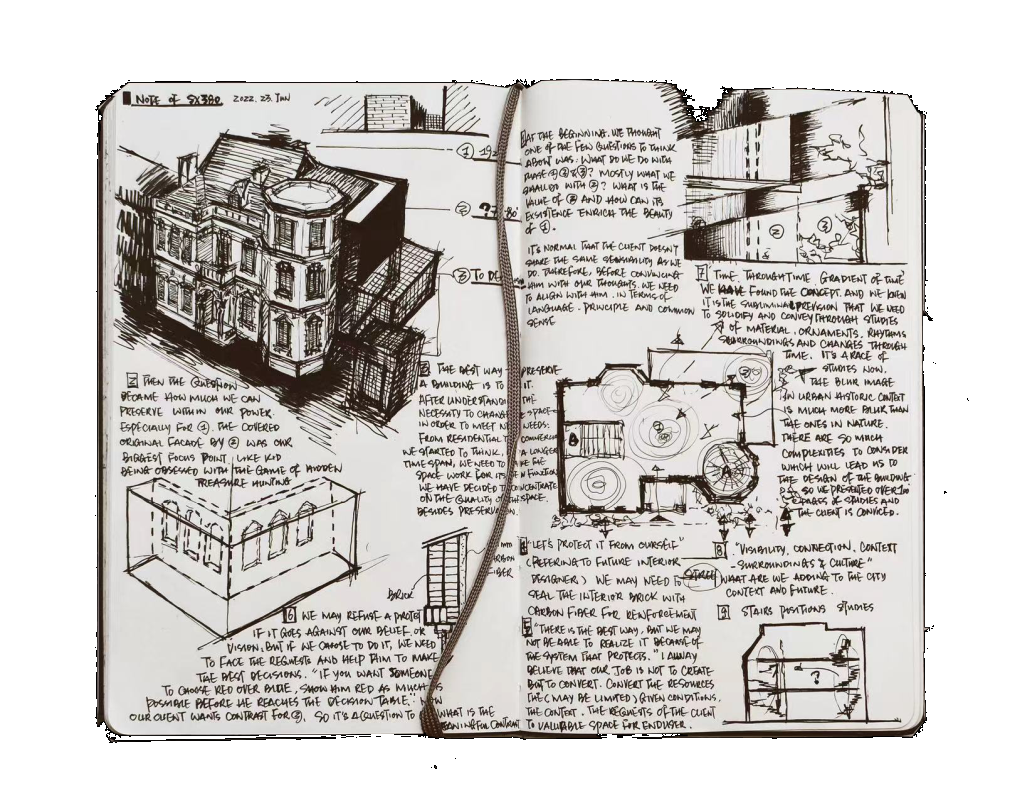 NOTE OF SX380 2022. 23. JUN
① 192
② ? - 80'
③ TO DE
AT THE BEGINNING. WE THOUGHT
ONE OF THE FEW QUESTIONS TO THINK
ABOUT WAS: WHAT DO WE DO WITH
PHASE ① ② & ③? MOSTLY WHAT WE
SHALL DO WITH ②? WHAT IS THE
VALUE OF ② AND HOW CAN ITS
EXSISTENCE ENRICH THE BEAUTY
OF ①.
IT'S NORMAL THAT THE CLIENT DOESN'T
SHARE THE SAME SENSIBILITY AS WE
DO. THEREFORE, BEFORE CONVINCING
HIM WITH OUR THOUGHTS. WE NEED
TO ALIGN WITH HIM. IN TERMS OF
LANGUAGE. PRINCIPLE AND COMMON
SENSE
2 THEN THE QUESTION
BECAME HOW MUCH WE CAN
PRESERVE WITHIN OUR POWER.
ESPECIALLY FOR ①. THE COVERED
ORIGINAL FACADE BY ② WAS OUR
BIGGEST FOCUS POINT. LIKE KID
BEING OBSESSED WITH THE GAME OF HIDDEN
TREASURE HUNTING
3 THE BEST WAY PRESERVE
A BUILDING IS TO IT.
AFTER UNDERSTANDI THE
NECESSITY TO CHANGE SPACE
IN ORDER TO MEET N NEEDS.
FROM RESIDENTIAL T COMMERCIA
WE STARTED TO THINK, A LONGER
TIME SPAN, WE NEED TO THE
SPACE WORK FOR ITS FUNCTION
WE HAVE DECIDED TO CONCENTRATE
ON THE QUALITY OF THE SPACE.
BESIDES PRESERV
BRICK
CARBON
FIBER
4 "LET'S PROTECT IT FROM OURSELF"
(REFERING TO FUTURE INTERIOR
DESIGNER.) WE MAY NEED TO
SEAL THE INTERIOR BRICK WITH
CARBON FIBER FOR REINFORCEMENT
5 "THERE IS THE BEST WAY, BUT WE MAY
NOT BE ABLE TO REALIZE IT BECAUSE OF
THE SYSTEM THAT PROTECTS." I ALWAY
BELIEVE THAT OUR JOB IS NOT TO CREATE
BUT TO CONVERT. CONVERT THE RESOURCES
THE (MAY BE LIMITED) GIVEN CONDITIONS.
THE CONTEXT. THE REQUESTS OF THE CLIENT
TO VALUABLE SPACE FOR ENDUSER.
6 WE MAY REFUSE A PROJE
IF IT GOES AGAINST OUR BELIEF. OR
VISION. BUT IF WE CHOOSE TO DO IT, WE NEED
TO FACE THE REQUESTS AND HELP HIM TO MAKE
THE BEST DECISIONS. "IF YOU WANT SOMEONE
TO CHOOSE RED OVER BLUE, SHOW HIM RED AS MUCH AS
POSSIBLE BEFORE HE REACHES THE DECISION TABLE." NOW
OUR CLIENT WANTS CONTRAST FOR ③, SO IT'S A QUESTION TO WHAT IS THE
MEANINGFUL CONTRAST
7 TIME. THROUGH TIME GRADIENT OF TIME
WE HAVE FOUND THE CONCEPT. AND WE KNEW
IT IS THE SUBLIMINAL PREVISION THAT WE NEED
TO SOLIDIFY AND CONVEY THROUGH STUDIES
OF MATERIAL, ORNAMENTS, RHYTHMS
SURROUNDINGS AND CHANGES THROUGH
TIME. IT'S A RACE OF
STUDIES NOW.
THE BLUR IMAGE
IN URBAN HISTORIC CONTEXT
IS MUCH MORE BLUR THAN
THE ONES IN NATURE.
THERE ARE SO MUCH
COMPLEXITIES TO CONSIDER
WHICH WILL LEAD US TO
THE DESIGN OF THE BUILDING
SO WE PRESENTED OVER
PAGES OF STUDIES AND
THE CLIENT IS CONVICED.
8 "VISIBILITY, CONNECTION, CONTEXT
- SURROUNDINGS & CULTURE"
WHAT ARE WE ADDING TO THE CITY
CONTEXT AND FUTURE.
9 STAIRS POSITIONS STUDIES
?